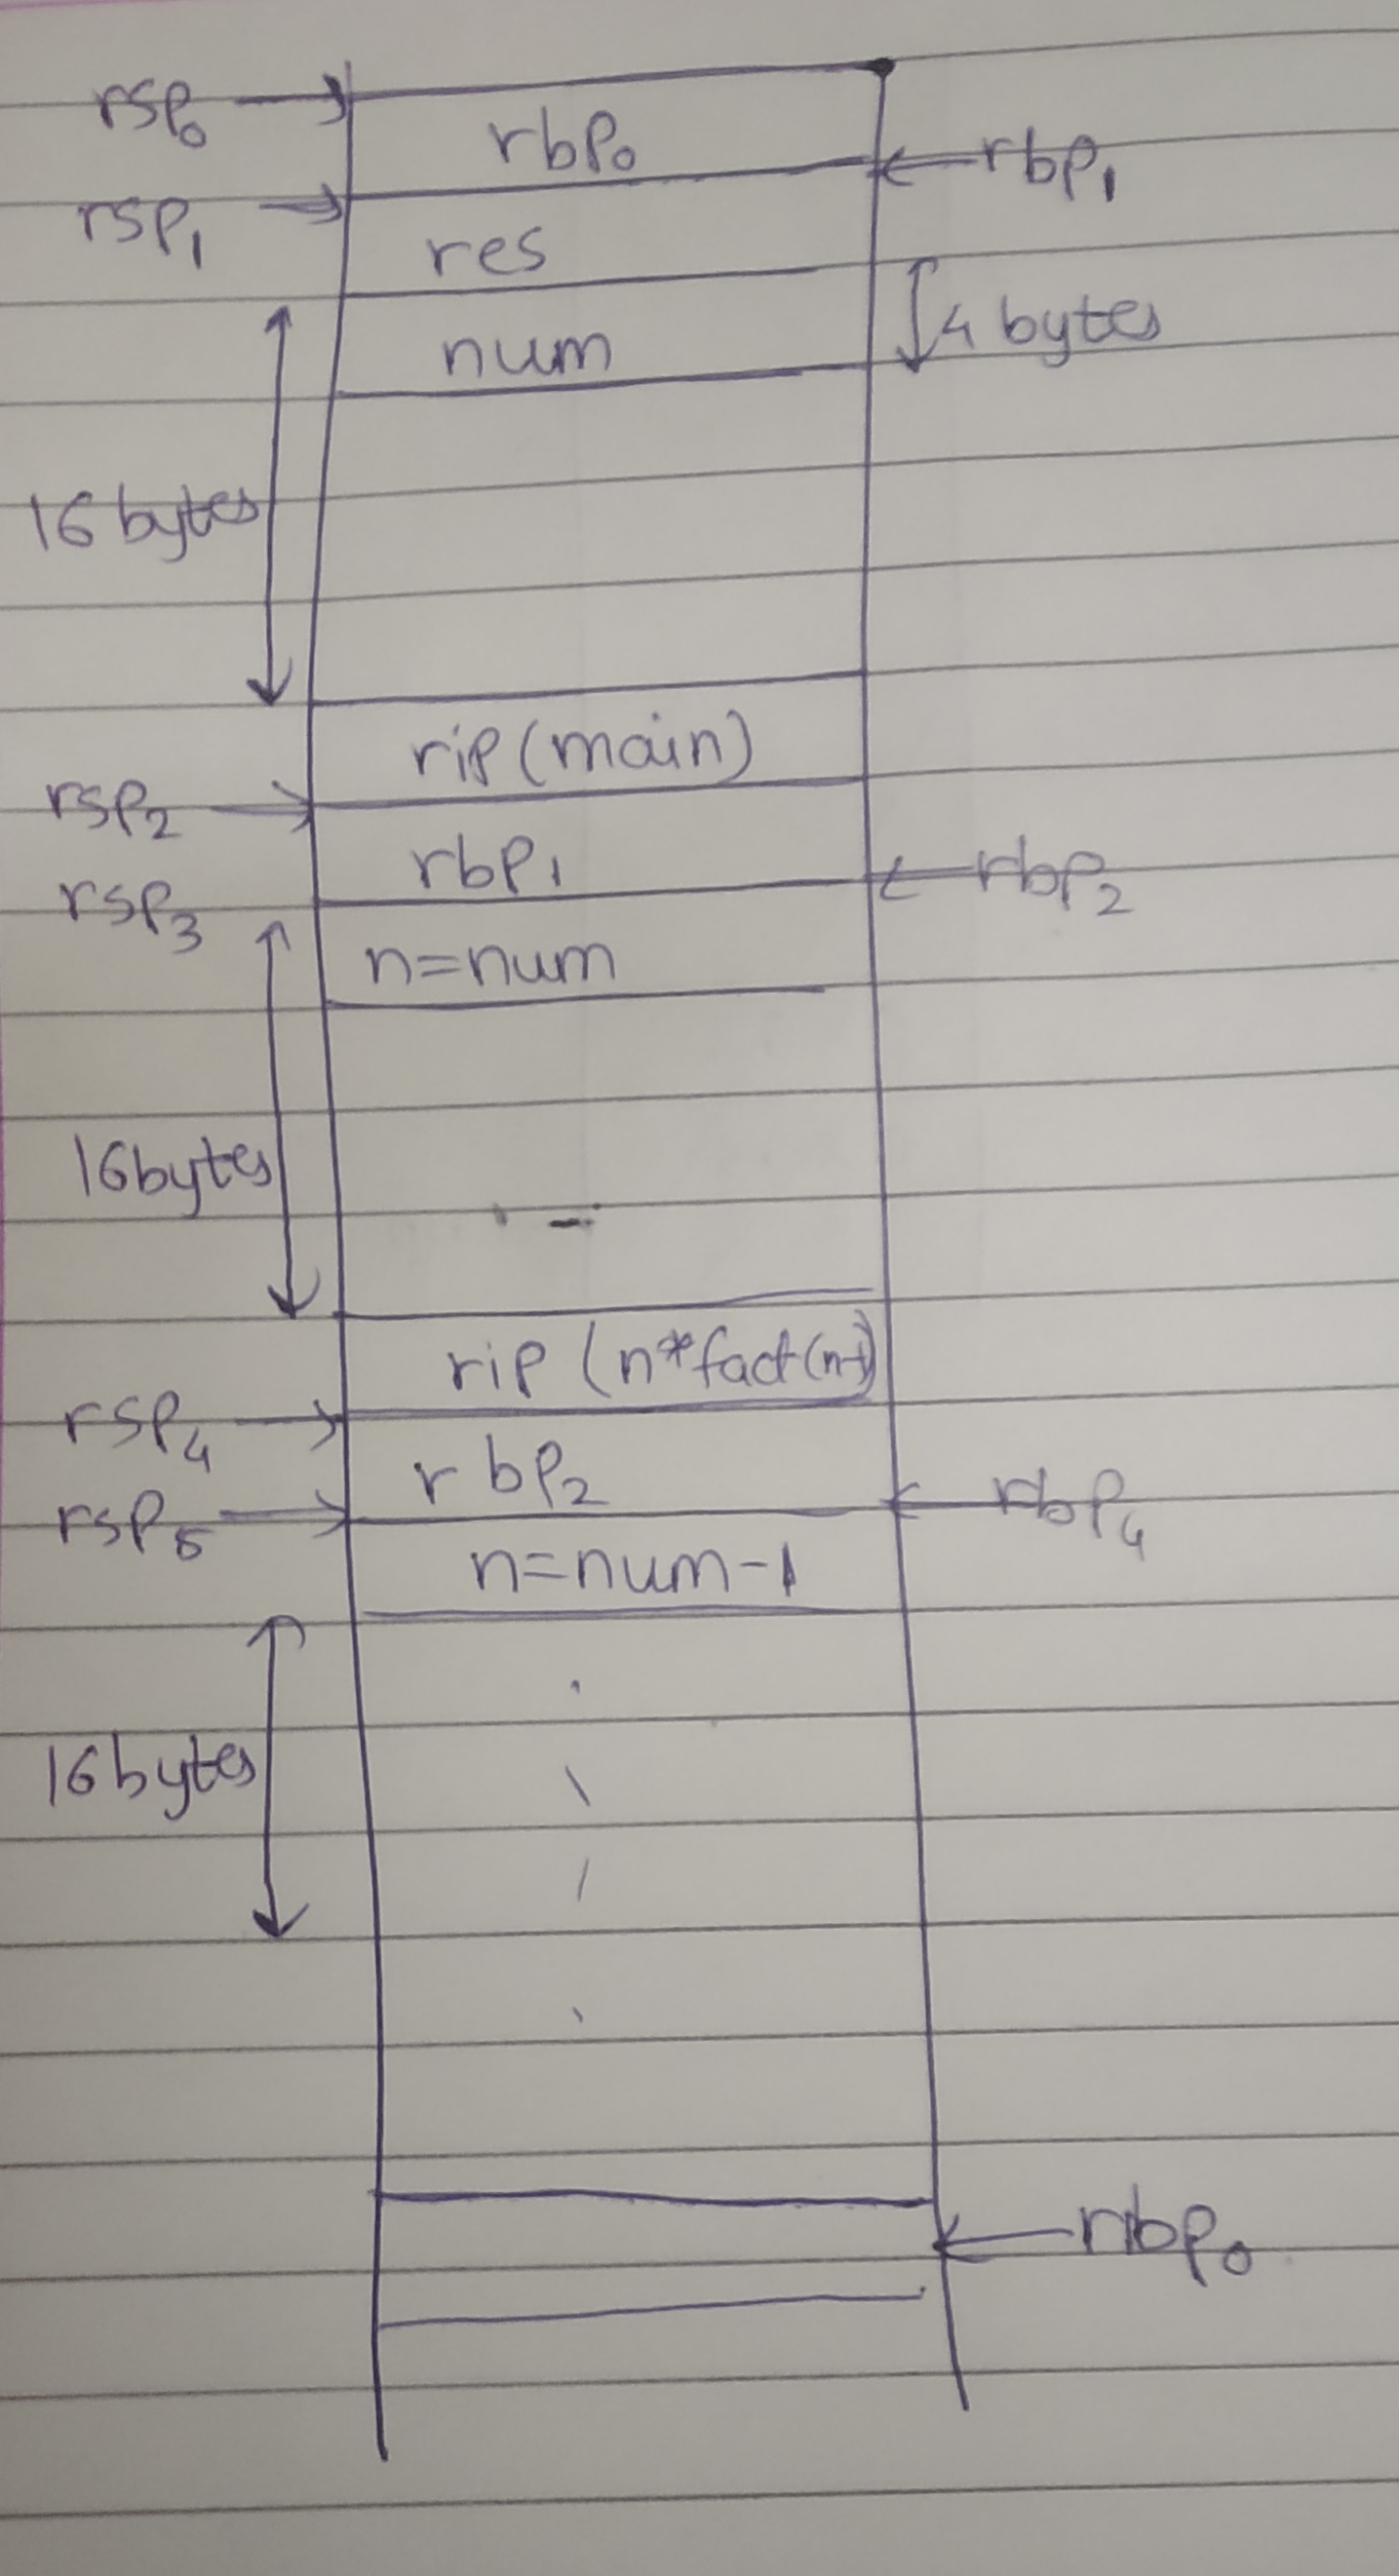 rsp₀
rbp₀
rbp₁
rsp₁
res
num
4 bytes
16 bytes
rip (main)
rsp₂
rbp₁
rbp₂
rsp₃
n=num
16bytes
rip (n*fact(n-1)
rsp₄
rbp₂
rbp₄
rsp₅
n=num-1
16bytes
rbp₀